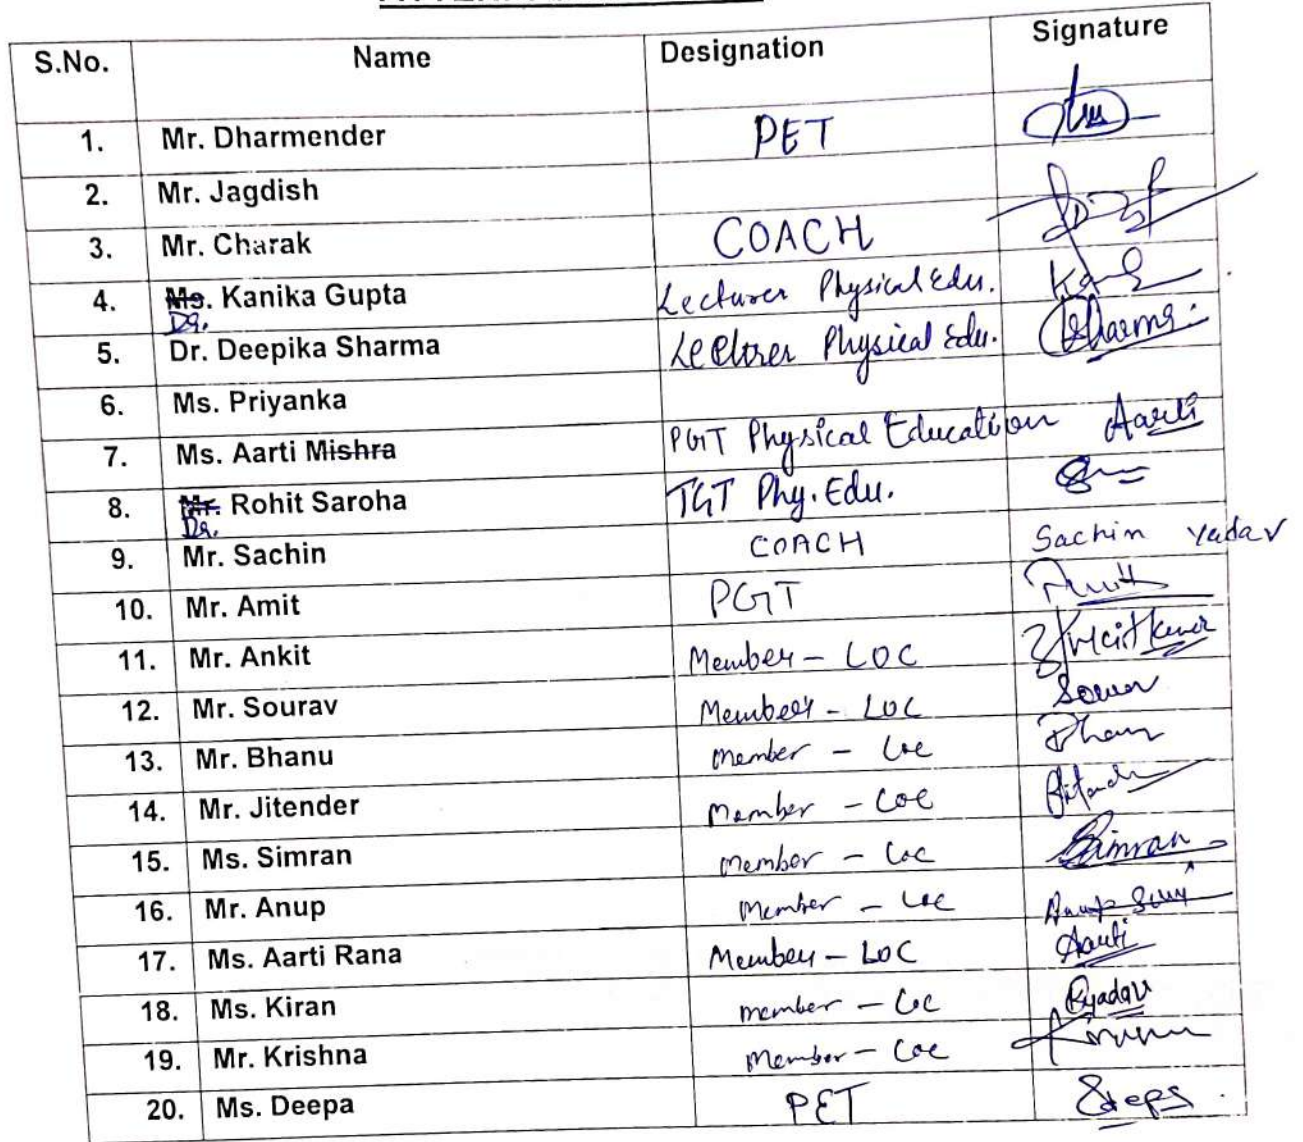 S.No. Name Designation Signature
1. Mr. Dharmender PET
2. Mr. Jagdish
3. Mr. Charak COACH
4. Ms. Kanika Gupta Lecturer Physical Edu.
Dr.
5. Dr. Deepika Sharma Lecturer Physical Edu. Sharma
6. Ms. Priyanka
7. Ms. Aarti Mishra PGT Physical Education Aarti
8. Mr. Rohit Saroha TGT Phy. Edu.
Dr.
9. Mr. Sachin COACH Sachin Yadav
10. Mr. Amit PGT
11. Mr. Ankit Member - LOC
12. Mr. Sourav Member - LOC
13. Mr. Bhanu Member - Loc
14. Mr. Jitender Member - Loc
15. Ms. Simran Member - Loc Simran
16. Mr. Anup Member - Loc Anup
17. Ms. Aarti Rana Member - LOC Aarti
18. Ms. Kiran member - Loc
19. Mr. Krishna Member - Loc
20. Ms. Deepa PET